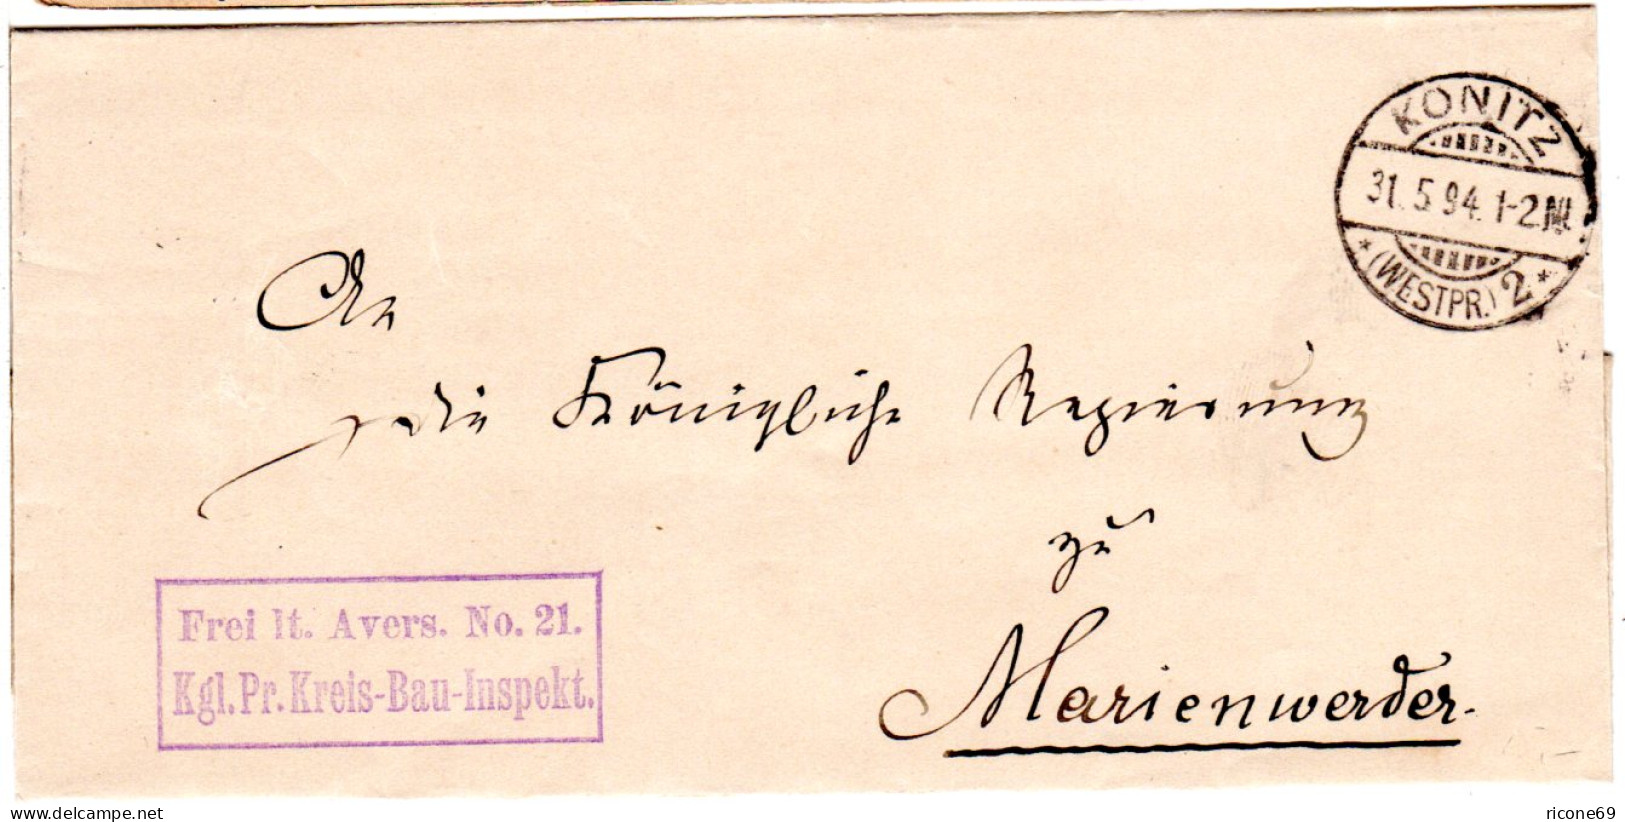 KONITZ
31.5.94.1-2N.
* (WESTPR.) 2 *
An
die Königliche Regierung
zu
Marienwerder.
Frei lt. Avers. No. 21.
Kgl. Pr. Kreis-Bau-Inspekt.
www.delcampe.net
ricone69